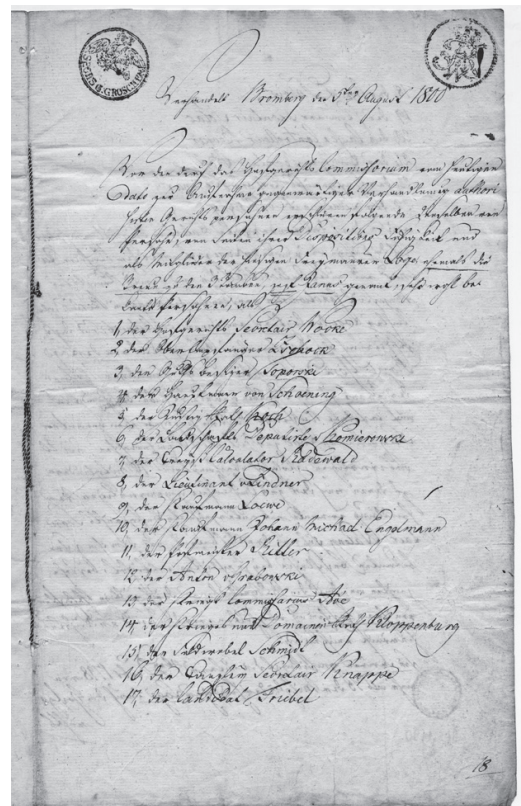 SECHS G. GROSCHEN
Verhandelt Bromberg den 5ten August 1800
Von der durch das Hofgerichts Commissorium vom heutigen
Dato zur Aufnahme gegenwärtiger Verhandlung authori
sirten Gerichts erschienen folgende, derselben von
Person, von Seiten ihrer Dispositions Fähigkeit und
als Mitglieder der hiesigen Freymaurer Loge, ehemals die
zu den 3 Säulen, jezt Janus genannt, sehr wohl be
kante Personen, als
1, der Hofgerichts Secretair Nocke
2, der
3, der Guts Besitzer Toporski
4, der Hauptmann von Schoening
5, der
6, der Landschafts Deputirte v
7, der Creys Calculator Radewald
8, der Lieutnant v Lindner
9, der Kaufmann Loewe
10, der Kaufmann Johann Michael Engelmann
11, der Postmeister Ritter
12, der Anton v Grabowski
13, der Kriegs Commissarius
14, der Kriegs und Domainen Rath Kloppenburg
15, der Feldwebel Schmidt
16, der Canzley Secretair Knappe
17, der Candidat Friebel
18